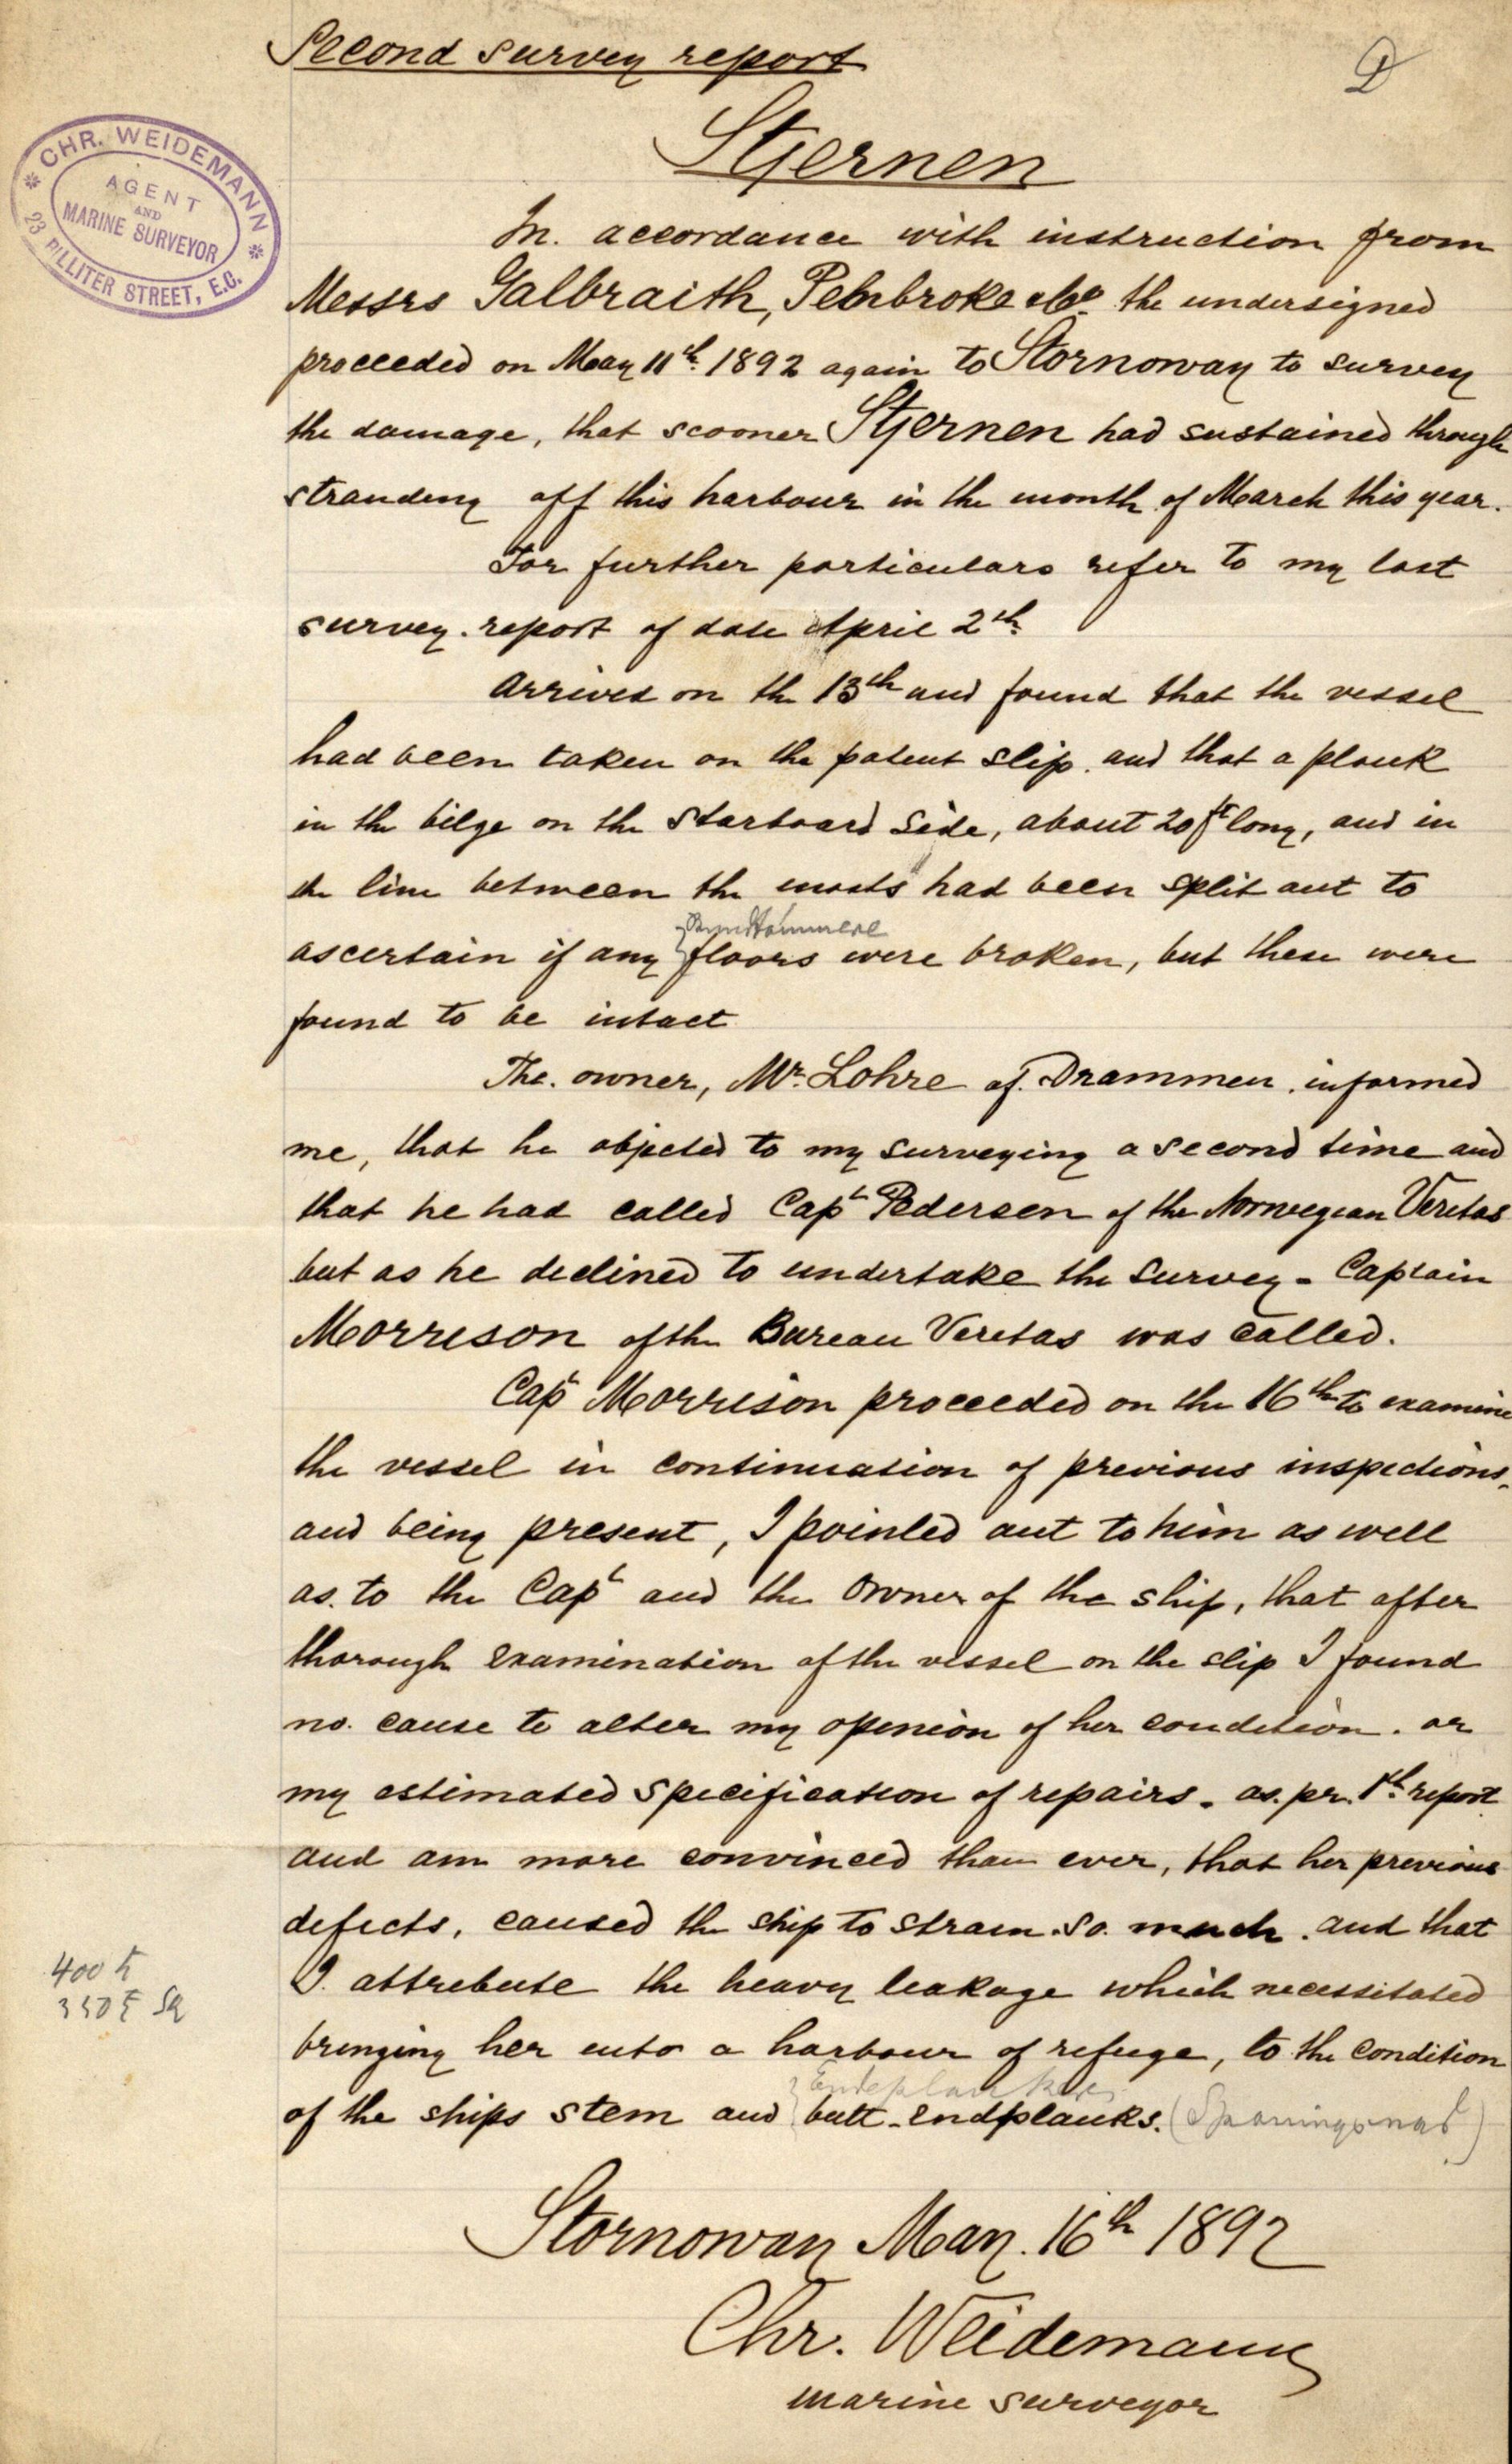 Second survey report
D
Stjernen
CHR. WEIDEMANN
AGENT
AND
MARINE SURVEYOR
23 BILLITER STREET, E.C.
In. accordance with instruction from
Messrs Galbraith, Pembroke & Co. the undersigned
proceeded on May 11th. 1892 again to Stornoway to survey
the damage, that scooner Stjernen had sustained through
stranding off this harbour in the month of March this year.
For further particulars refer to my last
survey. report of date April 2th.
Arrived on the 13th and found that the vessel
had been taken on the patent slip. and that a plank
in the bilge on the starboard side, about 20 ft long, and in
the line between the masts had been split out to
Bundtømmere
ascertain if any floors were broken, but these were
found to be intact
The. owner, Mr. Lohre of. Drammen. informed
me, that he objected to my surveying a second time and
that he had called Capt Pedersen of the Norwegian Veritas
but as he declined to undertake the survey - Captain
Morrison of the Bureau Veritas was called.
Capt Morrison proceeded on the 16th to examine
the vessel in continuation of previous inspections,
and being present, I pointed out to him as well
as. to the Capt and the Owner of the ship, that after
thorough examination of the vessel on the slip I found
no. cause to alter my openion of her condition. or
my estimated specification of repairs. as. pr. 1th. report
and am more convinced than ever, that her previous
defects, caused the ship to strain. so. much. and that
I. attribute the heavy leakage which necessitated
bringing her into a harbour of refuge, to the condition
Endeplanker
of the ships stem and butt-endplanks. (Spøningsnad)
400
350
Stornoway May. 16th 1892
Chr. Weidemann
marine surveyor